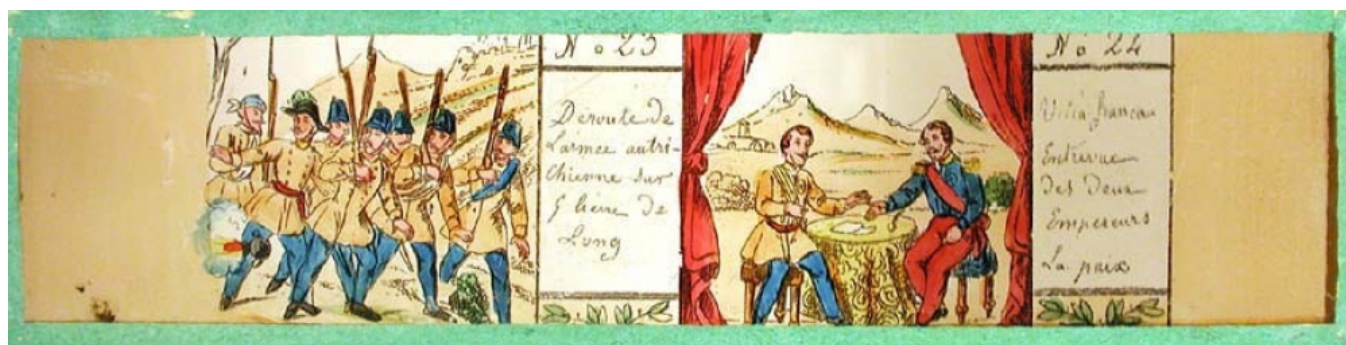 No 23
Déroute de
L'armée autri-
chienne sur
5 lieue de
Long
No 24
Villa franca
Entrevue
des deux
Empereurs
La paix